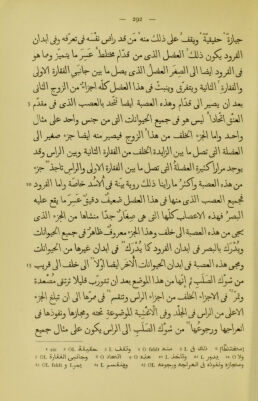 — 292 —
حيازة حقيقيّة ويقف على ذلك منه من قد راض نفسه في تعرفه وفي ابدان
القرود يكون ذلك العضل الذي من قدّام مختلط عسر ما يتميّز وهما هو
في القرود ايضا الى الصغر العضل الذي يصل ما بين جانبي الفقارة الاولى
والفقارة الثانية ويتفرق وينبث في هذا العضل كلّه اجزاء من الزوج الثانى
بعد ان يصير الى قدّام وهذه العصبة ايضا تتّحد بالعصب الذى فى مقدّم
العنق اتّحادا ليس هو فى جميع الحيوانات التى من جنس واحد على مثال
واحد واما الجزء الخلف من هذا الزوج فيصير منه ايضا جزء صغير الى
العضلة التى تصل ما بين الزايدة الخلف من الفقارة الثانية وبين الراس وقد
يوجد مرارا كثيرة العضلة التى تصل ما بين الفقارة الاولى والراس تاخذ جزء
من هذه العصبة واكثر ما راينا ذلك روية بيّنة فى الأسد خاصّة واما القرود
فجميع العصب الذى منها فى هذا العضل ضعيف دقيق عسر ما يقع عليه
البصر فهذه الاعصاب كلّها التى هى صغار جدّا منشاها من الجزء الذى
يجىء من هذه العصبة الى خلف وهذا الجزء معروف ظاهر فى جميع الحيوانات
ويدرك بالبصر فى ابدان القرود كما يدرك فى ابدان غيرها من الحيوانات
ويجىء هذه العصبة فى ابدان الحيوانات الأخر ايضا اوّلا الى خلف الى قريب
من شوك الصلب ثم إنّها من هذا الموضع بعد ان تتورّب قليلا ترتقى متصعّدة
وتمرّ فى الاجزاء الخلف من اجزاء الراس وتنقسم فى مرّها الى ان تبلغ الجزء
الاعلى من الراس فى الجلد وفى الأغشية الموضوعة تحته ومجازها ونفوذها فى
انعراجها ورجوعها من شوك الصلب الى الراس يكون على مثال جميع